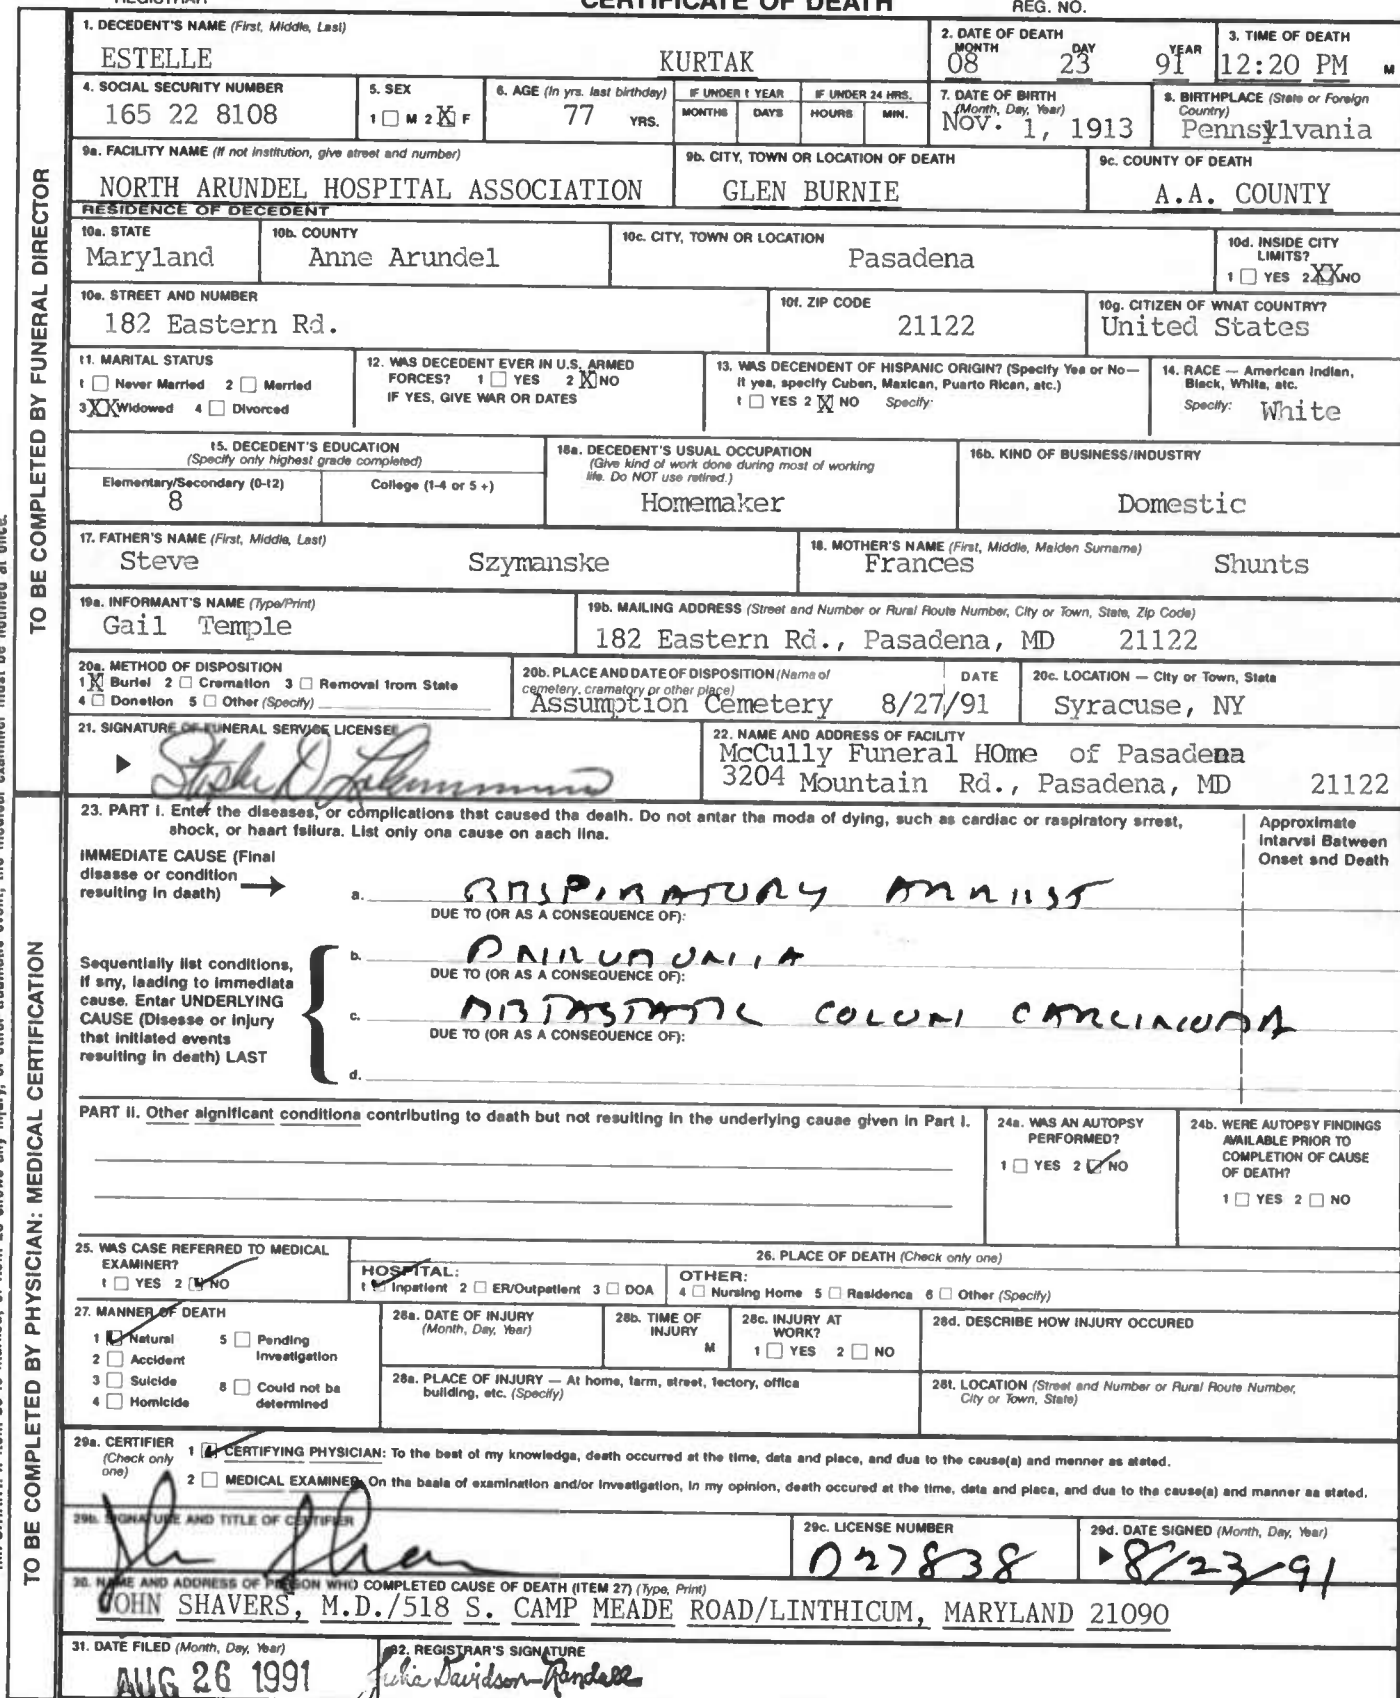 REGISTRAR
CERTIFICATE OF DEATH
REG. NO.
TO BE COMPLETED BY FUNERAL DIRECTOR
1. DECEDENT'S NAME (First, Middle, Last)
ESTELLE KURTAK
2. DATE OF DEATH
MONTH DAY YEAR
08 23 91
3. TIME OF DEATH
12:20 PM M
4. SOCIAL SECURITY NUMBER
165 22 8108
5. SEX
1 ☐ M 2 X F
6. AGE (In yrs. last birthday)
77 YRS.
IF UNDER 1 YEAR
MONTHS DAYS
IF UNDER 24 HRS.
HOURS MIN.
7. DATE OF BIRTH
(Month, Day, Year)
Nov. 1, 1913
8. BIRTHPLACE (State or Foreign
Country)
Pennsylvania
9a. FACILITY NAME (If not institution, give street and number)
NORTH ARUNDEL HOSPITAL ASSOCIATION
9b. CITY, TOWN OR LOCATION OF DEATH
GLEN BURNIE
9c. COUNTY OF DEATH
A.A. COUNTY
RESIDENCE OF DECEDENT
10a. STATE
Maryland
10b. COUNTY
Anne Arundel
10c. CITY, TOWN OR LOCATION
Pasadena
10d. INSIDE CITY
LIMITS?
1 ☐ YES 2 XX NO
10e. STREET AND NUMBER
182 Eastern Rd.
10f. ZIP CODE
21122
10g. CITIZEN OF WHAT COUNTRY?
United States
11. MARITAL STATUS
1 ☐ Never Married 2 ☐ Married
3 XX Widowed 4 ☐ Divorced
12. WAS DECEDENT EVER IN U.S. ARMED
FORCES? 1 ☐ YES 2 X NO
IF YES, GIVE WAR OR DATES
13. WAS DECENDENT OF HISPANIC ORIGIN? (Specify Yes or No—
If yes, specify Cuban, Maxican, Puarto Rican, atc.)
1 ☐ YES 2 X NO Specify:
14. RACE — American Indian,
Black, White, atc.
Specify: White
15. DECEDENT'S EDUCATION
(Specify only highest grade completed)
Elementary/Secondary (0-12) College (1-4 or 5 +)
8
16a. DECEDENT'S USUAL OCCUPATION
(Give kind of work done during most of working
life. Do NOT use retired.)
Homemaker
16b. KIND OF BUSINESS/INDUSTRY
Domestic
17. FATHER'S NAME (First, Middle, Last)
Steve Szymanske
18. MOTHER'S NAME (First, Middle, Maiden Surname)
Frances Shunts
19a. INFORMANT'S NAME (Type/Print)
Gail Temple
19b. MAILING ADDRESS (Street and Number or Rural Route Number, City or Town, State, Zip Code)
182 Eastern Rd., Pasadena, MD 21122
20a. METHOD OF DISPOSITION
1 X Burial 2 ☐ Cremation 3 ☐ Removal from State
4 ☐ Donation 5 ☐ Other (Specify)
20b. PLACE AND DATE OF DISPOSITION (Name of
cemetery, crematory or other place)
DATE
Assumption Cemetery 8/27/91
20c. LOCATION — City or Town, State
Syracuse, NY
21. SIGNATURE OF FUNERAL SERVICE LICENSEE
22. NAME AND ADDRESS OF FACILITY
McCully Funeral HOme of Pasadena
3204 Mountain Rd., Pasadena, MD 21122
TO BE COMPLETED BY PHYSICIAN: MEDICAL CERTIFICATION
23. PART I. Enter the diseases, or complications that caused tha death. Do not antar tha moda of dying, such as cardiac or raspiratory srrest,
shock, or haart fsilura. List only ona cause on aach lina.
Approximate
Intarvsl Batween
Onset snd Death
IMMEDIATE CAUSE (Final
disasse or condition
resulting in daath)
a. RESPIRATORY ARREST
DUE TO (OR AS A CONSEQUENCE OF):
Sequentially list conditions,
if sny, laading to immadiata
cause. Entar UNDERLYING
CAUSE (Disesse or injury
that initiated events
resulting in death) LAST
b. PNEUMONIA
DUE TO (OR AS A CONSEQUENCE OF):
c. METASTATIC COLON CARCINOMA
DUE TO (OR AS A CONSEQUENCE OF):
d.
PART II. Other significant conditions contributing to daath but not resulting in the underlying cauae given in Part I.
24a. WAS AN AUTOPSY
PERFORMED?
1 ☐ YES 2 ☑ NO
24b. WERE AUTOPSY FINDINGS
AVAILABLE PRIOR TO
COMPLETION OF CAUSE
OF DEATH?
1 ☐ YES 2 ☐ NO
25. WAS CASE REFERRED TO MEDICAL
EXAMINER?
1 ☐ YES 2 ☑ NO
26. PLACE OF DEATH (Check only one)
HOSPITAL:
1 ☑ Inpatient 2 ☐ ER/Outpatient 3 ☐ DOA
OTHER:
4 ☐ Nursing Home 5 ☐ Rasidenca 6 ☐ Other (Specify)
27. MANNER OF DEATH
1 ☑ Natural 5 ☐ Pending
Investigation
2 ☐ Accident
3 ☐ Suicide 8 ☐ Could not ba
determined
4 ☐ Homicide
28a. DATE OF INJURY
(Month, Day, Year)
28b. TIME OF
INJURY
M
28c. INJURY AT
WORK?
1 ☐ YES 2 ☐ NO
28d. DESCRIBE HOW INJURY OCCURED
28a. PLACE OF INJURY — At home, farm, street, fectory, offica
building, etc. (Specify)
28f. LOCATION (Street and Number or Rural Route Number,
City or Town, State)
29a. CERTIFIER
(Check only
one)
1 ☑ CERTIFYING PHYSICIAN: To the best of my knowledga, death occurred at the time, data and place, and due to the cause(a) and menner as stated.
2 ☐ MEDICAL EXAMINER: On tha baala of examination and/or Investigation, in my opinion, death occured at the time, data and placa, and due to the cause(a) and manner aa stated.
29b. SIGNATURE AND TITLE OF CERTIFIER
29c. LICENSE NUMBER
D27838
29d. DATE SIGNED (Month, Day, Year)
8/23/91
30. NAME AND ADDRESS OF PERSON WHO COMPLETED CAUSE OF DEATH (ITEM 27) (Type, Print)
JOHN SHAVERS, M.D./518 S. CAMP MEADE ROAD/LINTHICUM, MARYLAND 21090
31. DATE FILED (Month, Day, Year)
AUG 26 1991
32. REGISTRAR'S SIGNATURE
Julia Davidson-Randall